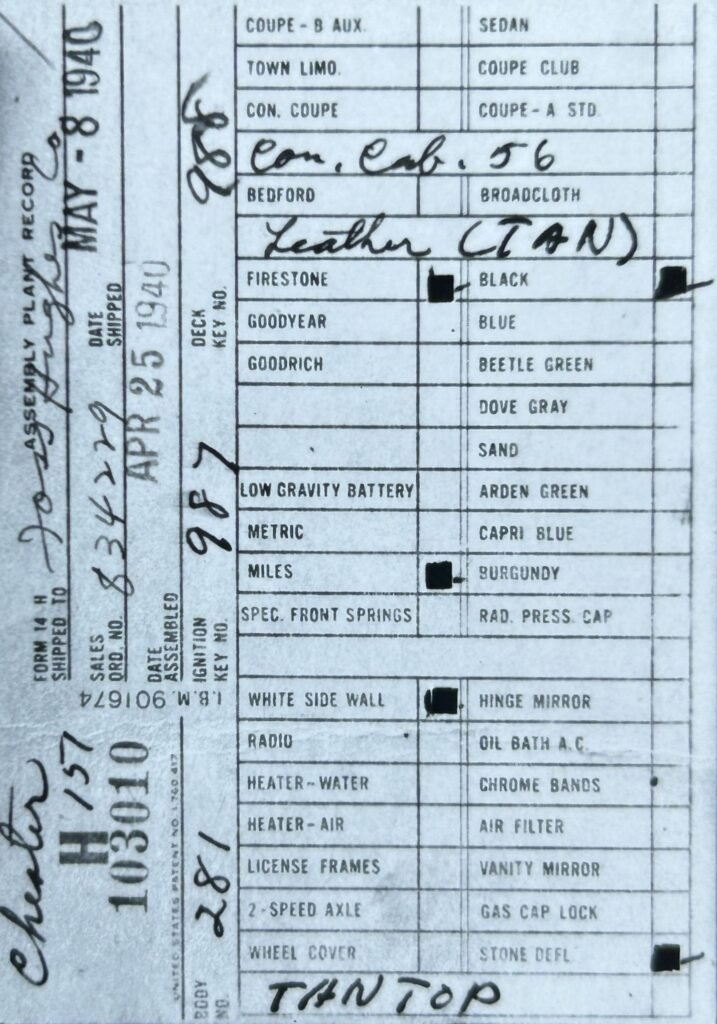 ASSEMBLY PLANT RECORD
FORM 14 H
SHIPPED TO Foss Hughes Co
SALES ORD. NO. 834229
DATE SHIPPED MAY - 8 1940
DATE ASSEMBLED APR 25 1940
IGNITION KEY NO. 987
DECK KEY NO. 988
I.B.M. 901674
Chester
H 157
103010
UNITED STATES PATENT NO. 1,760,417
BODY NO. 281
COUPE - B AUX. SEDAN
TOWN LIMO. COUPE CLUB
CON. COUPE COUPE - A STD
Con. Cab. 56
BEDFORD BROADCLOTH
Leather (TAN)
FIRESTONE BLACK
GOODYEAR BLUE
GOODRICH BEETLE GREEN
DOVE GRAY
SAND
LOW GRAVITY BATTERY ARDEN GREEN
METRIC CAPRI BLUE
MILES BURGUNDY
SPEC. FRONT SPRINGS RAD. PRESS. CAP
WHITE SIDE WALL HINGE MIRROR
RADIO OIL BATH A.C.
HEATER-WATER CHROME BANDS
HEATER-AIR AIR FILTER
LICENSE FRAMES VANITY MIRROR
2-SPEED AXLE GAS CAP LOCK
WHEEL COVER STONE DEFL
TAN TOP